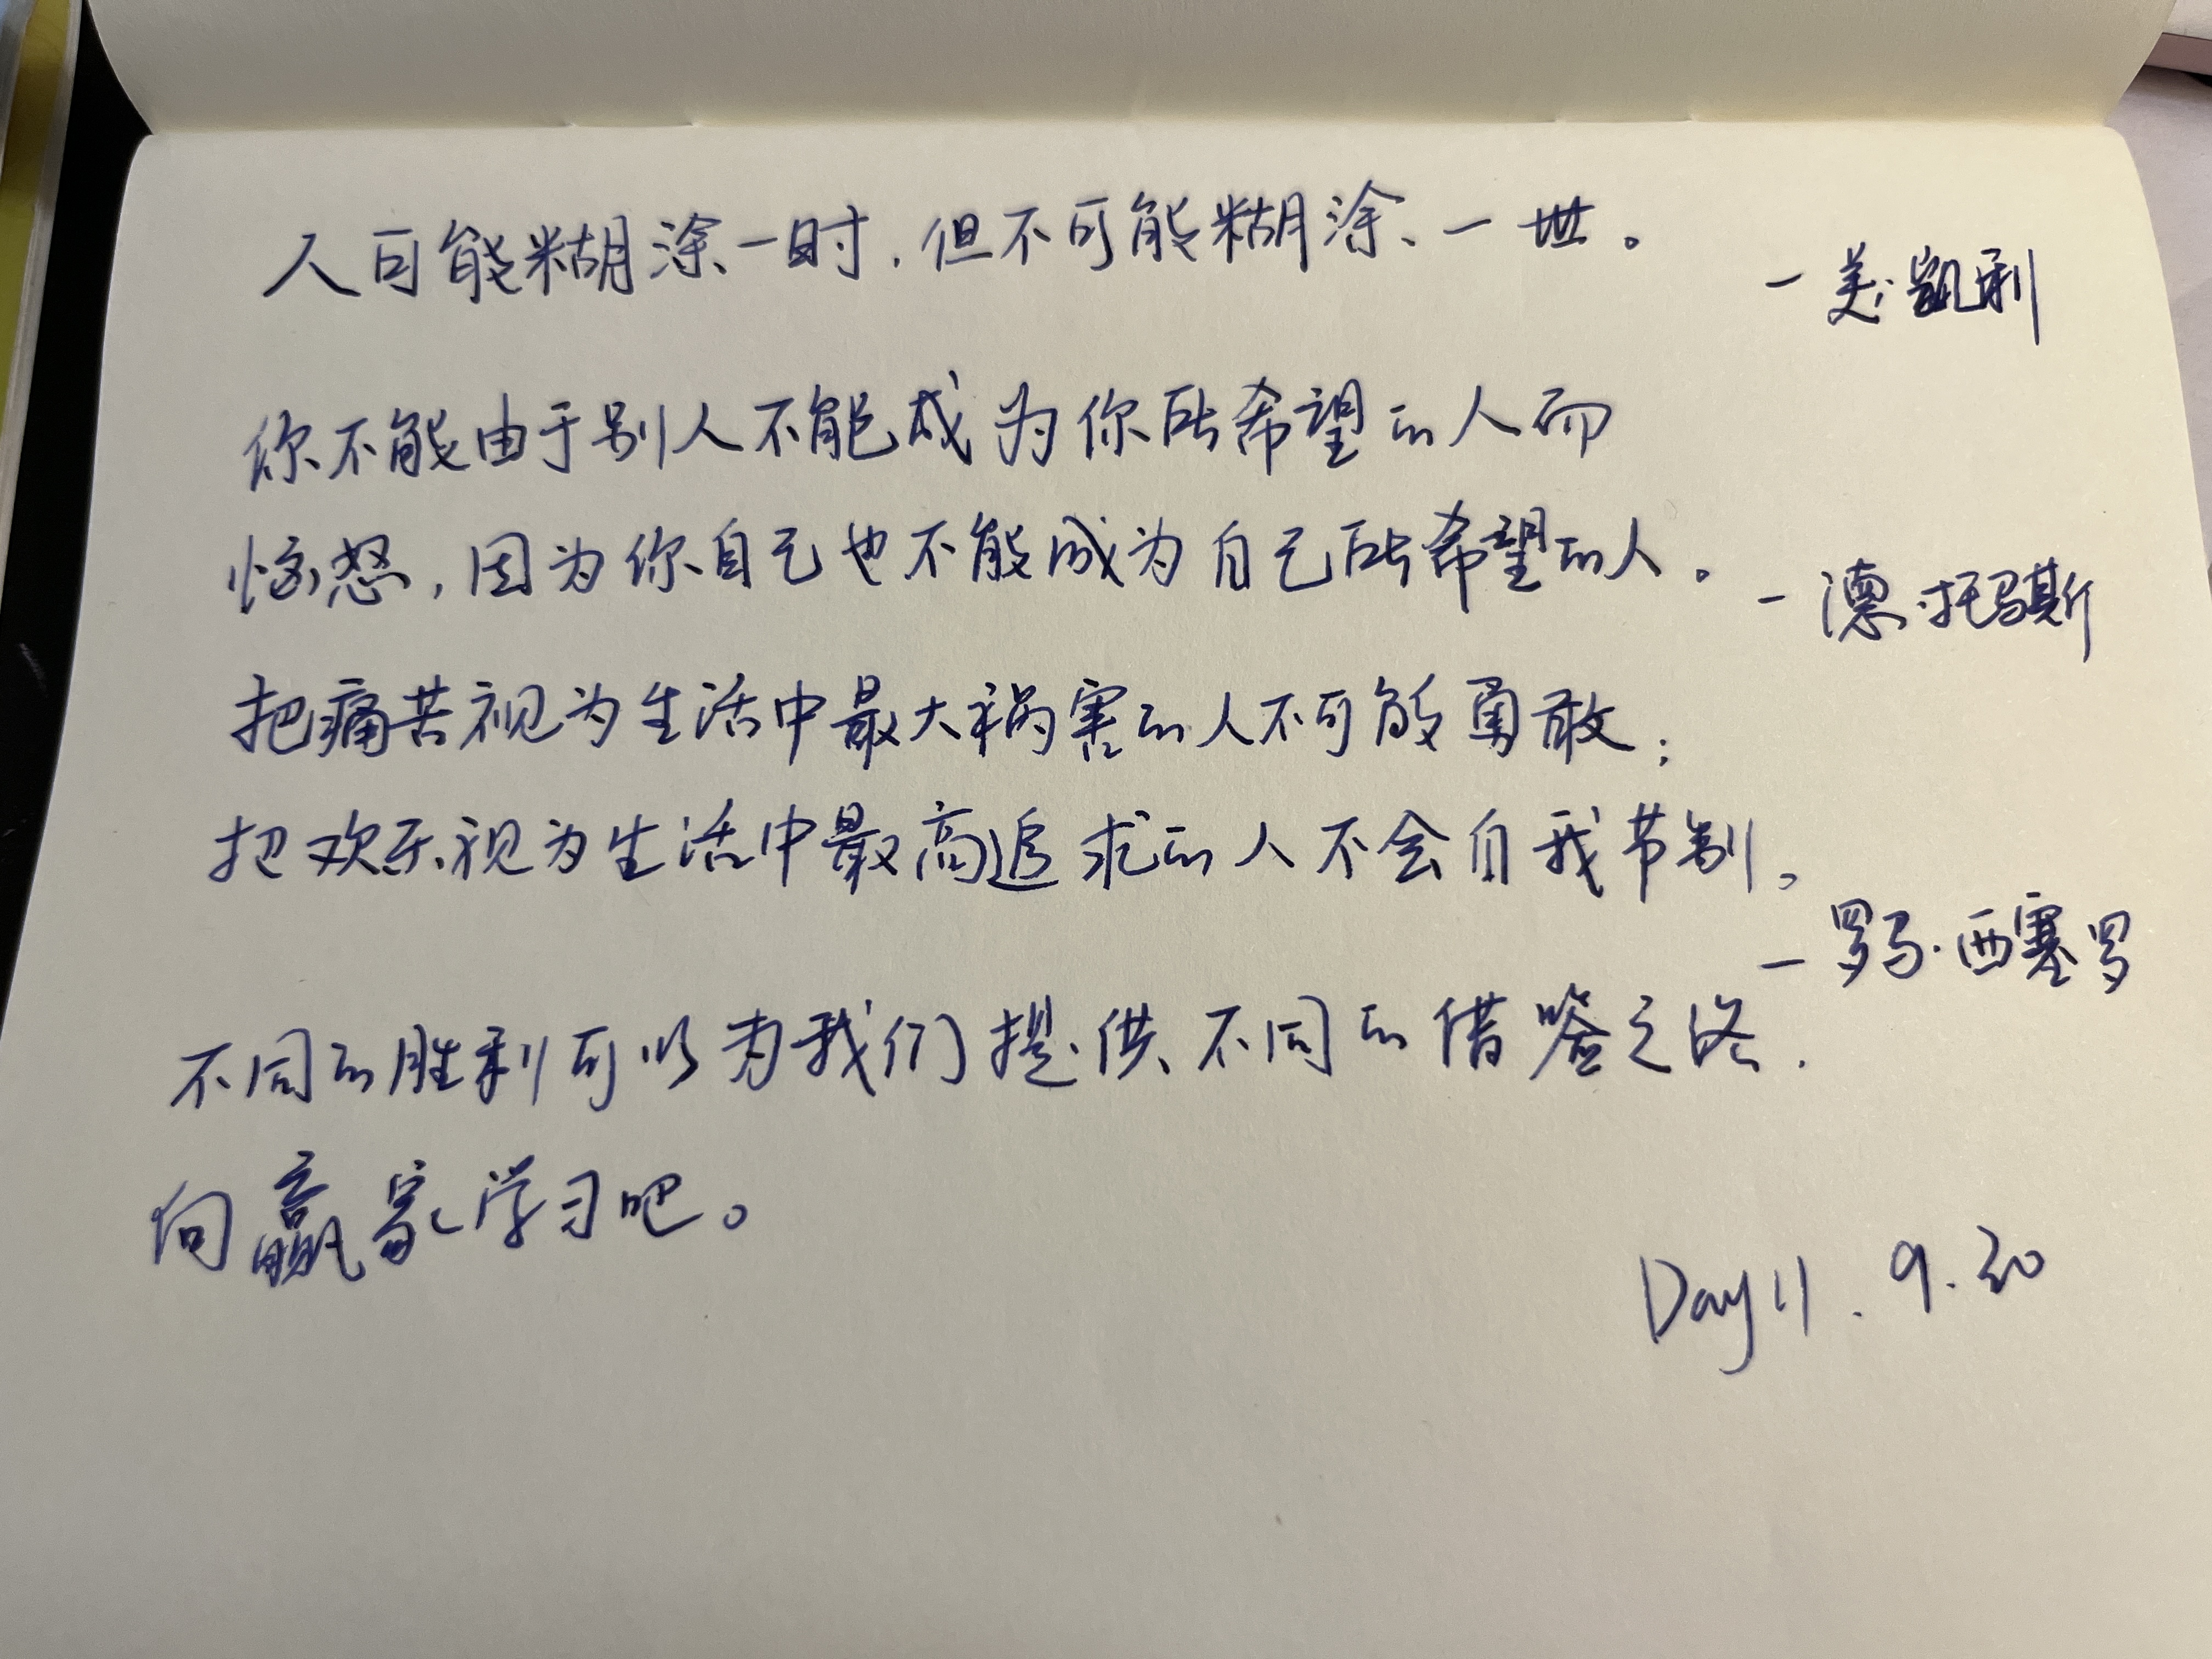 人可能糊涂一时，但不可能糊涂一世。
—美·凯利
你不能由于别人不能成为你所希望的人而
恼怒，因为你自己也不能成为自己所希望的人。
—德·托马斯
把痛苦视为生活中最大祸害的人不可能勇敢；
把欢乐视为生活中最高追求的人不会自我节制。
—罗马·西塞罗
不同的胜利可以为我们提供不同的借鉴之
向赢家学习吧。
Day 11. 9.30